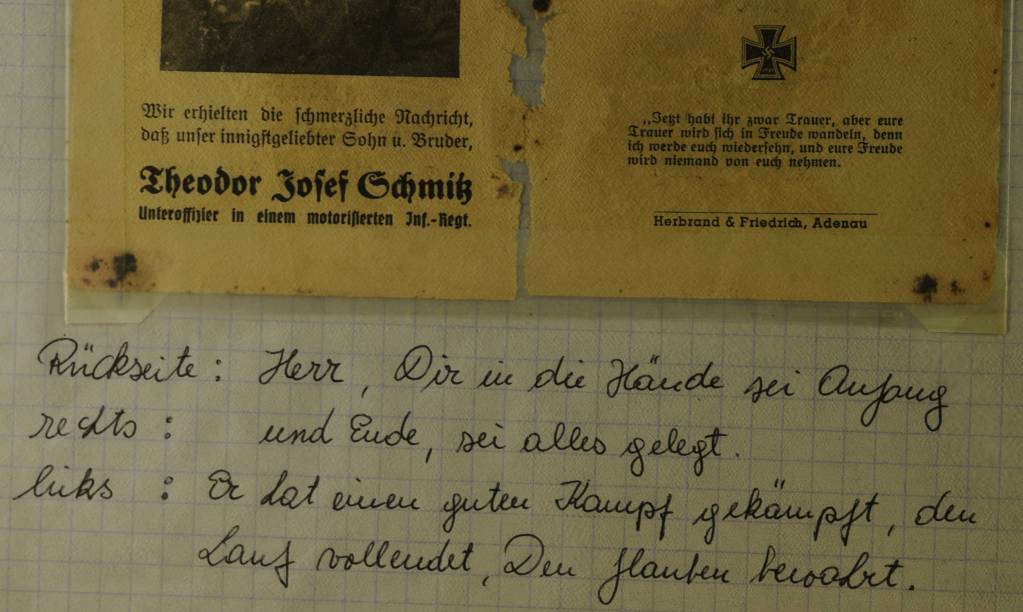 Wir erhielten die schmerzliche Nachricht,
daß unser innigstgeliebter Sohn u. Bruder,
Theodor Josef Schmitz
Unteroffizier in einem motorisierten Inf.-Regt.
„Jetzt habt ihr zwar Trauer, aber eure
Trauer wird sich in Freude wandeln, denn
ich werde euch wiedersehn, und eure Freude
wird niemand von euch nehmen.
Herbrand & Friedrich, Adenau
Rückseite : Herr, Dir in die Hände sei Anfang
rechts : und Ende, sei alles gelegt.
links : Er hat einen guten Kampf gekämpft, den
Lauf vollendet, Den Glauben bewahrt.